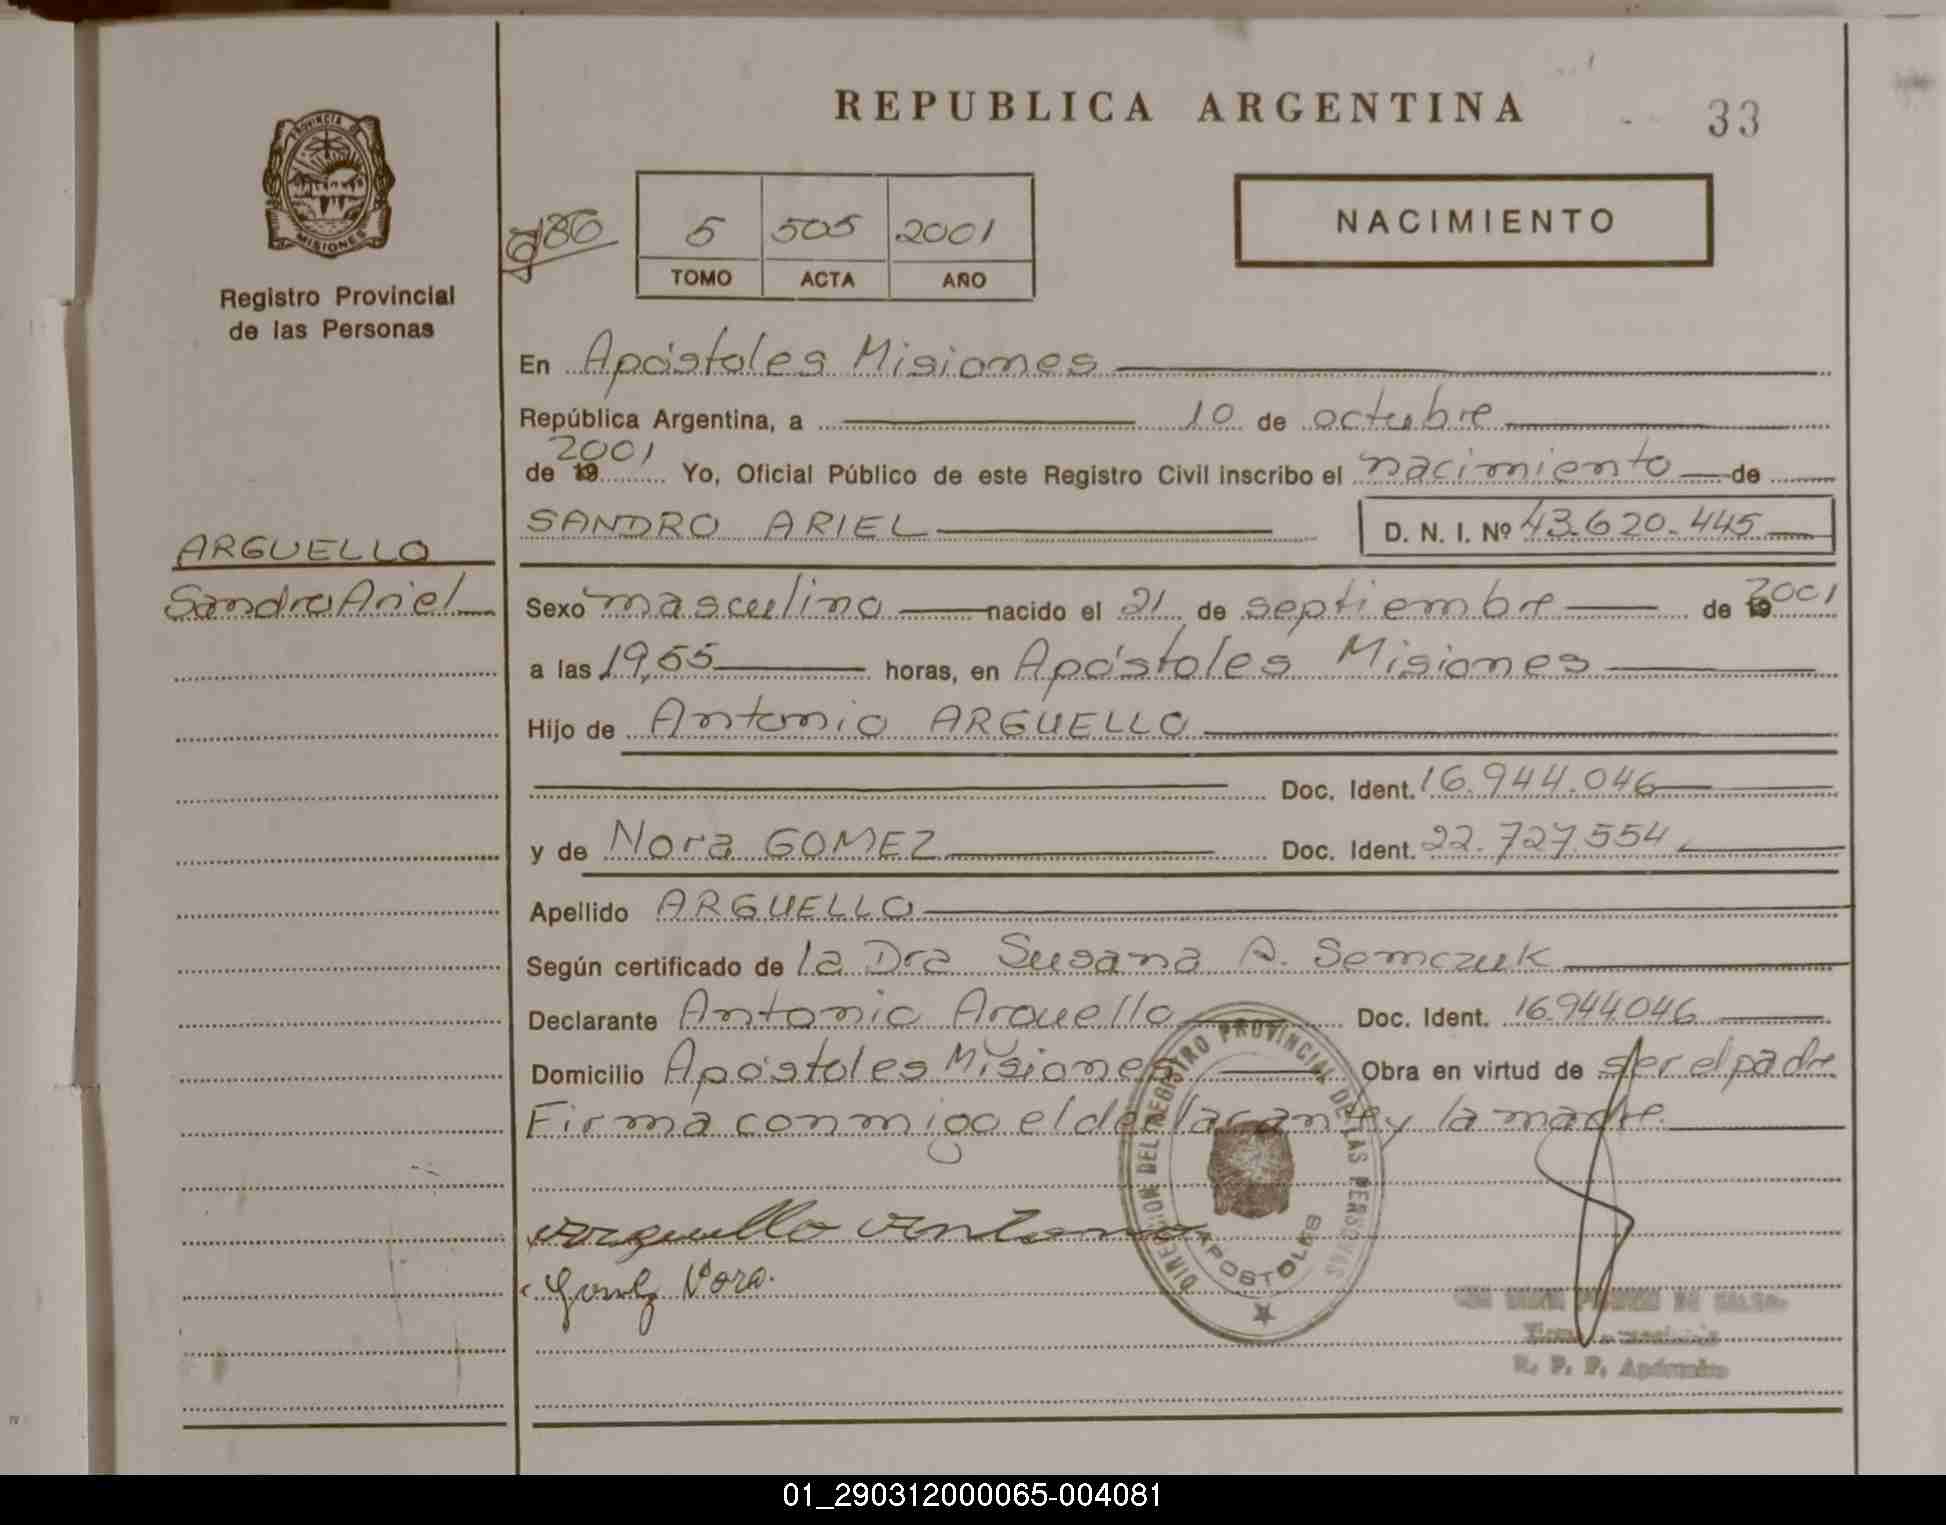 REPUBLICA ARGENTINA
33
PROVINCIA DE
MISIONES
Registro Provincial
de las Personas
5 505 2001
TOMO ACTA AÑO
NACIMIENTO
En Apóstoles Misiones
República Argentina, a 10 de octubre
de 19 2001 Yo, Oficial Público de este Registro Civil inscribo el nacimiento de
SANDRO ARIEL D. N. I. Nº 43.620.445
ARGUELLO
Sandro Ariel
Sexo masculino nacido el 21 de septiembre de 19 2001
a las 19,55 horas, en Apóstoles Misiones
Hijo de Antonio ARGUELLO
Doc. Ident. 16.944.046
y de Nora GOMEZ Doc. Ident. 22.727.554
Apellido ARGUELLO
Según certificado de la Dra Susana A. Semczuk
Declarante Antonio Arguello Doc. Ident. 16944046
Domicilio Apóstoles Misiones Obra en virtud de ser el padre
Firma conmigo el declarante y la madre.
DIRECCION DEL REGISTRO PROVINCIAL DE LAS PERSONAS
APOSTOLES
Arguello Antonio
Nora
R. P. P. Apóstoles
01_290312000065-004081